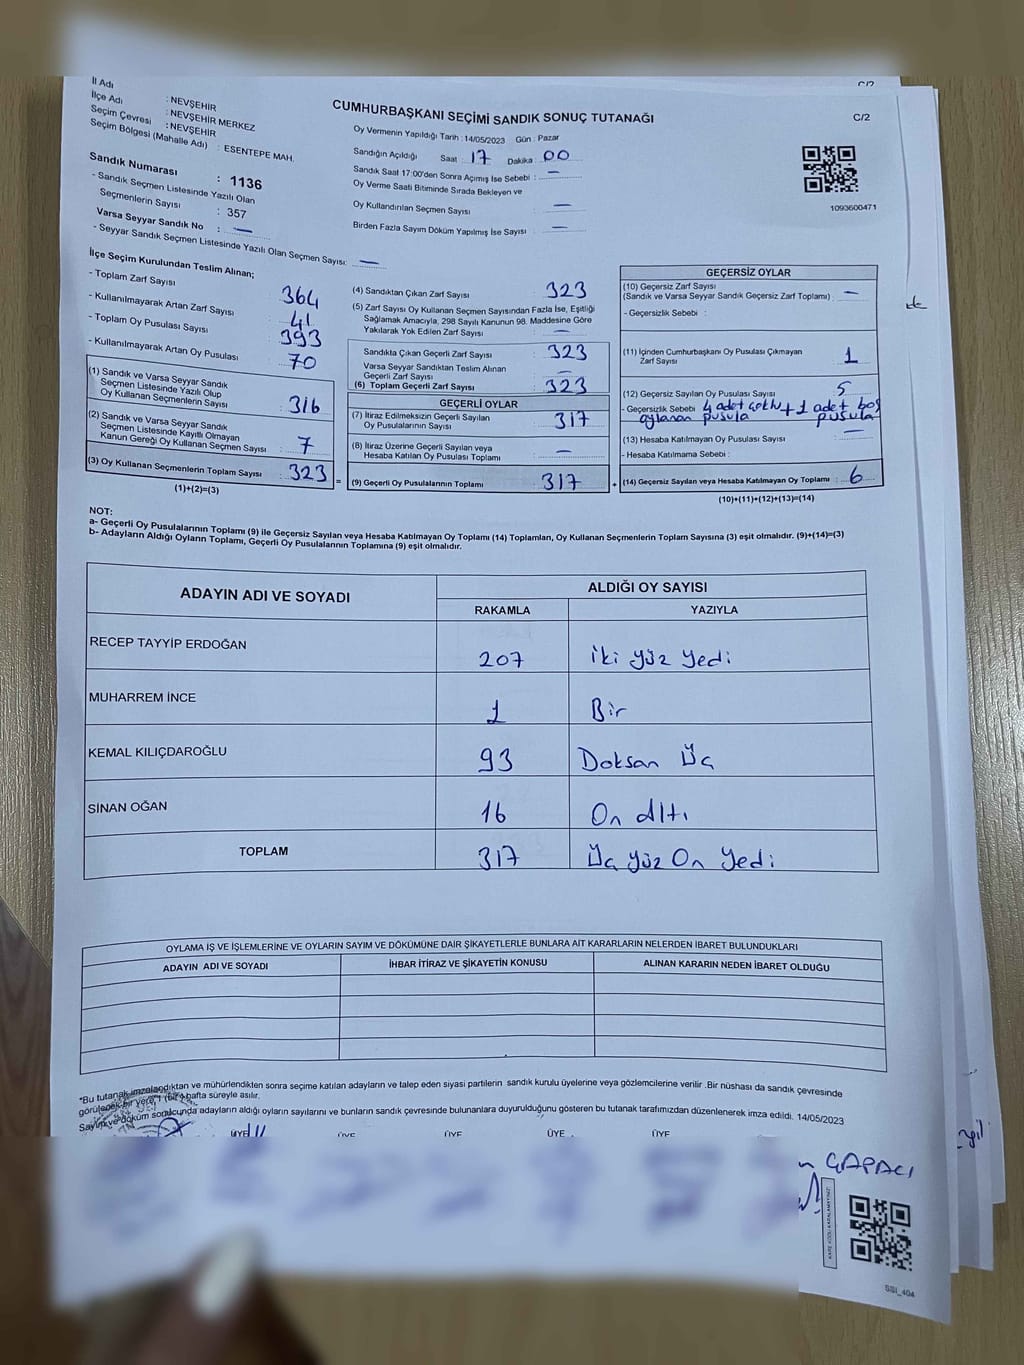 C/2
İl Adı : NEVŞEHİR
İlçe Adı : NEVŞEHİR MERKEZ
Seçim Çevresi : NEVŞEHİR
Seçim Bölgesi (Mahalle Adı) : ESENTEPE MAH.
Sandık Numarası : 1136
- Sandık Seçmen Listesinde Yazılı Olan
Seçmenlerin Sayısı : 357
Varsa Seyyar Sandık No : —
- Seyyar Sandık Seçmen Listesinde Yazılı Olan Seçmen Sayısı: —
CUMHURBAŞKANI SEÇİMİ SANDIK SONUÇ TUTANAĞI
C/2
Oy Vermenin Yapıldığı Tarih : 14/05/2023 Gün : Pazar
Sandığın Açıldığı Saat : 17 Dakika : 00
Sandık Saat 17:00'den Sonra Açımış İse Sebebi : —
Oy Verme Saati Bitiminde Sırada Bekleyen ve
Oy Kullandırılan Seçmen Sayısı : —
Birden Fazla Sayım Döküm Yapılmış İse Sayısı : —
1093600471
İlçe Seçim Kurulundan Teslim Alınan;
- Toplam Zarf Sayısı : 364
- Kullanılmayarak Artan Zarf Sayısı : 41
- Toplam Oy Pusulası Sayısı : 393
- Kullanılmayarak Artan Oy Pusulası : 70
(1) Sandık ve Varsa Seyyar Sandık
Seçmen Listesinde Yazılı Olup
Oy Kullanan Seçmenlerin Sayısı : 316
(2) Sandık ve Varsa Seyyar Sandık
Seçmen Listesinde Kayıtlı Olmayan
Kanun Gereği Oy Kullanan Seçmen Sayısı : 7
(3) Oy Kullanan Seçmenlerin Toplam Sayısı : 323 =
(1)+(2)=(3)
(4) Sandıktan Çıkan Zarf Sayısı : 323
(5) Zarf Sayısı Oy Kullanan Seçmen Sayısından Fazla İse, Eşitliği
Sağlamak Amacıyla, 298 Sayılı Kanunun 98. Maddesine Göre
Yakılarak Yok Edilen Zarf Sayısı : —
Sandıkta Çıkan Geçerli Zarf Sayısı : 323
Varsa Seyyar Sandıktan Teslim Alınan
Geçerli Zarf Sayısı : —
(6) Toplam Geçerli Zarf Sayısı : 323
GEÇERLİ OYLAR
(7) İtiraz Edilmeksizin Geçerli Sayılan
Oy Pusulalarının Sayısı : 317
(8) İtiraz Üzerine Geçerli Sayılan veya
Hesaba Katılan Oy Pusulası Toplamı : —
(9) Geçerli Oy Pusulalarının Toplamı : 317 +
GEÇERSİZ OYLAR
(10) Geçersiz Zarf Sayısı
(Sandık ve Varsa Seyyar Sandık Geçersiz Zarf Toplamı) : —
- Geçersizlik Sebebi :
(11) İçinden Cumhurbaşkanı Oy Pusulası Çıkmayan
Zarf Sayısı : 1
(12) Geçersiz Sayılan Oy Pusulası Sayısı : 5
- Geçersizlik Sebebi 4 adet çoklu + 1 adet boş
oylanan pusula pusula
(13) Hesaba Katılmayan Oy Pusulası Sayısı : —
- Hesaba Katılmama Sebebi :
(14) Geçersiz Sayılan veya Hesaba Katılmayan Oy Toplamı : 6
(10)+(11)+(12)+(13)=(14)
NOT:
a- Geçerli Oy Pusulalarının Toplamı (9) ile Geçersiz Sayılan veya Hesaba Katılmayan Oy Toplamı (14) Toplamları, Oy Kullanan Seçmenlerin Toplam Sayısına (3) eşit olmalıdır. (9)+(14)=(3)
b- Adayların Aldığı Oyların Toplamı, Geçerli Oy Pusulalarının Toplamına (9) eşit olmalıdır.
ADAYIN ADI VE SOYADI
ALDIĞI OY SAYISI
RAKAMLA YAZIYLA
RECEP TAYYİP ERDOĞAN 207 İki yüz yedi
MUHARREM İNCE 1 Bir
KEMAL KILIÇDAROĞLU 93 Doksan Üç
SİNAN OĞAN 16 On Altı
TOPLAM 317 Üç yüz On Yedi
OYLAMA İŞ VE İŞLEMLERİNE VE OYLARIN SAYIM VE DÖKÜMÜNE DAİR ŞİKAYETLERLE BUNLARA AİT KARARLARIN NELERDEN İBARET BULUNDUKLARI
ADAYIN ADI VE SOYADI İHBAR İTİRAZ VE ŞİKAYETİN KONUSU ALINAN KARARIN NEDEN İBARET OLDUĞU
*Bu tutanak imzalandıktan ve mühürlendikten sonra seçime katılan adayların ve talep eden siyasi partilerin sandık kurulu üyelerine veya gözlemcilerine verilir .Bir nüshası da sandık çevresinde
görülecek bir yere 1 (bir) hafta süreyle asılır.
Sayım ve döküm sonucunda adayların aldığı oyların sayılarını ve bunların sandık çevresinde bulunanlara duyurulduğunu gösteren bu tutanak tarafımızdan düzenlenerek imza edildi. 14/05/2023
ÜYE ÜYE ÜYE ÜYE ÜYE
ÇAPACI
SSİ_404